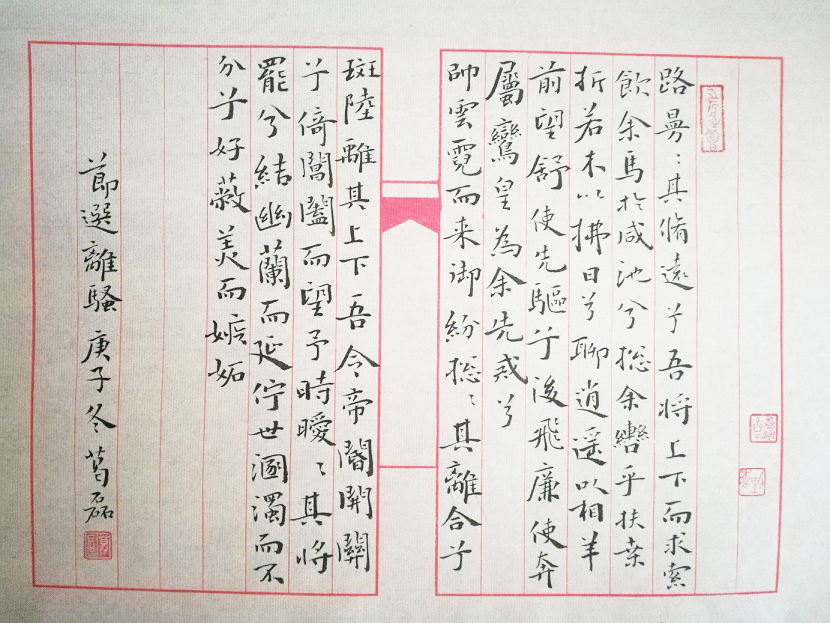 路曼〻其脩遠兮吾将上下而求索
飲余馬於咸池兮総余轡乎扶桒
折若木以拂日兮聊逍遥以相羊
前望舒使先驅兮後飛廉使奔
屬鸞皇為余先戒兮
帥雲霓而来御紛総〻其離合兮
斑陸離其上下吾令帝閽開關
兮倚閶闔而望予時曖〻其将
罷兮結幽蘭而延佇世溷濁而不
分兮好蔽美而嫉妬
節選離騷 庚子冬 葛磊